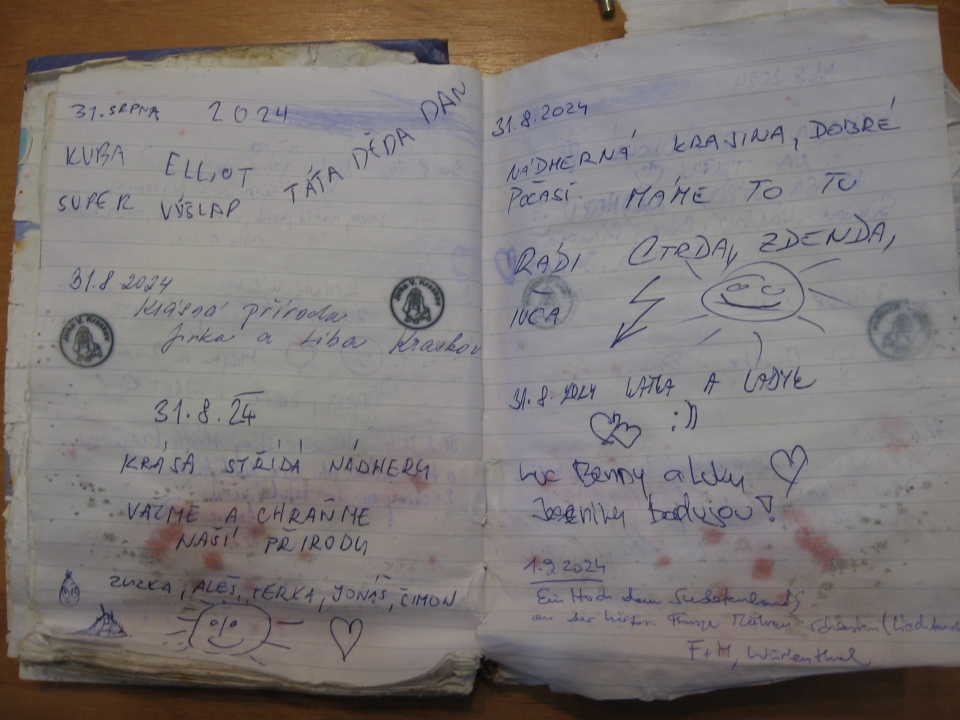 31. SRPNA 2024
KUBA ELLIOT TÁTA DĚDA DAN
SUPER VÝŠLAP
31.8 2024
Krásná příroda
Jinka a Liba Kraskov
31.8.24
KRÁSA STŘÍDÁ NÁDHERU
VAŽME A CHRAŇME
NAŠÍ PŘÍRODU
ZUZKA, ALEŠ, TERKA, JONÁŠ, ŠIMON
31.8.2024
NÁDHERNÁ KRAJINA, DOBRÉ
POČASÍ. MÁME TO TU
RÁDI CTRDA, ZDENDA,
IUČA
31.8.2024 KATKA A LADYK
:))
Luc Benny a
1.9.2024
Ein Hoch dem Sudetenland,
an der
F+M, Würbenthal